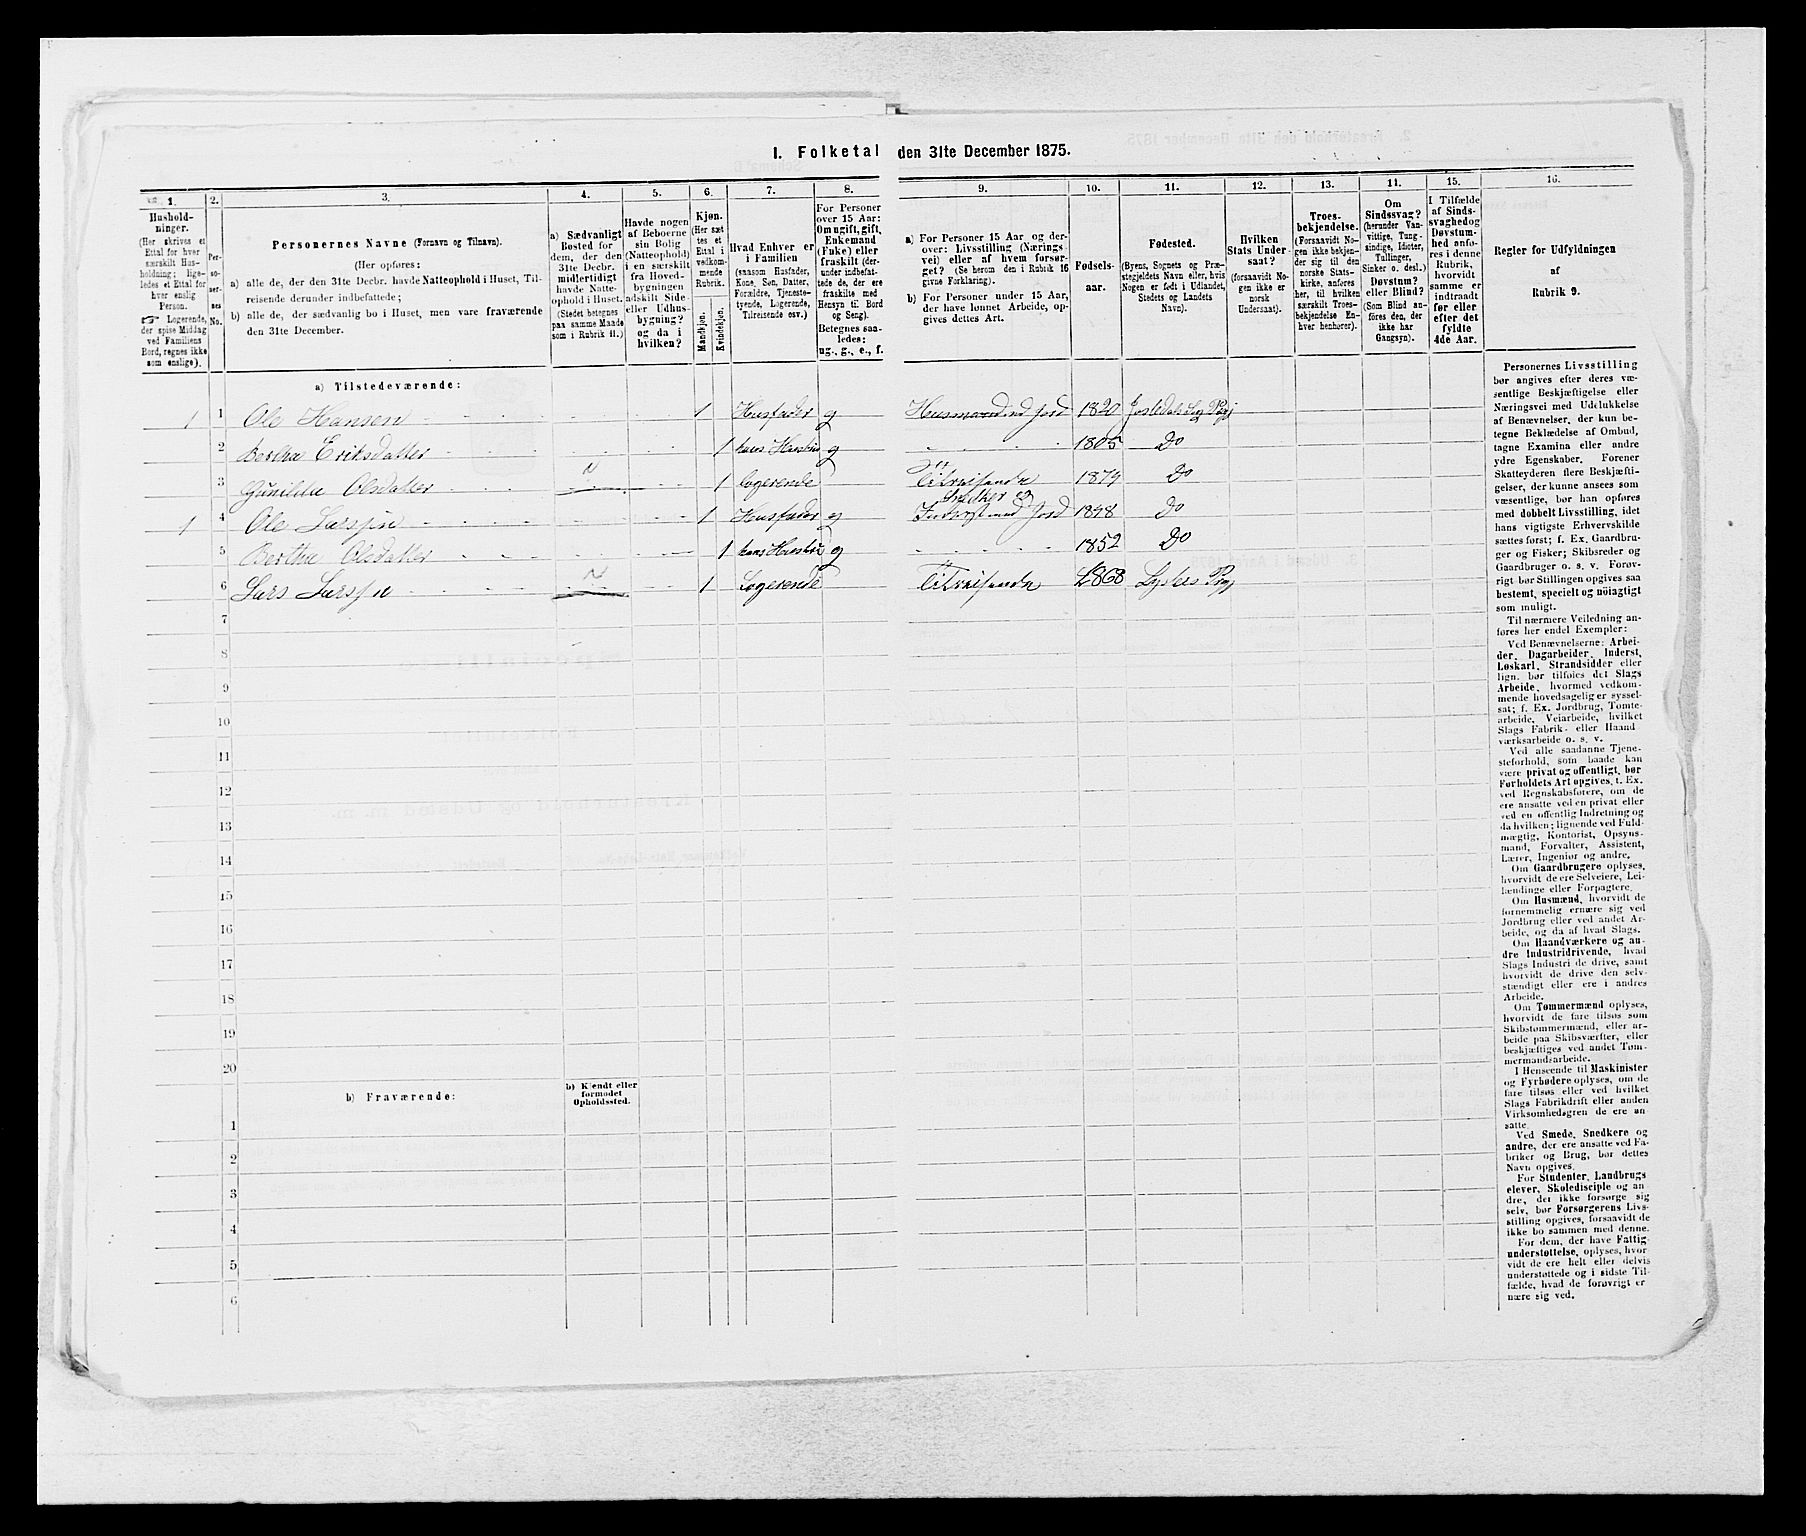 I. Folketal den 31te December 1875.
1. 2. 3. 4. 5. 6. 7. 8. 9. 10. 11. 12. 13. 14. 15. 16.
Hushold-
ninger.
(Her skrives et
Ettal for hver
særskilt Hus-
holdning; lige-
ledes et Ettal for
hver enslig
Person.
☞ Logerende,
der spise Middag
ved Familiens
Bord, regnes ikke
som enslige).
Per-
so-
ner-
nes
No.
Personernes Navne (Fornavn og Tilnavn).
(Her opføres:
a) alle de, der den 31te Decbr. havde Natteophold i Huset, Til-
reisende derunder indbefattede;
b) alle de, der sædvanlig bo i Huset, men vare fraværende
den 31te December.
a) Sædvanligt
Bosted for
dem, der den
31te Decbr.
midlertidigt
havde Natte-
ophold i Huset.
(Stedet betegnes
paa samme Maade
som i Rubrik 11.)
Havde nogen
af Beboerne
sin Bolig
(Natteophold)
i en særskilt
fra Hoved-
bygningen
adskilt Side-
eller Udhus-
bygning?
og da i
hvilken?
Kjøn.
(Her sæt-
tes et
Ettal i
vedkom-
mende
Rubrik.
Mandkjøn.
Kvindekjøn.
Hvad Enhver er
i Familien
(saasom Husfader,
Kone, Søn, Datter,
Forældre, Tjeneste-
tyende, Logerende,
Tilreisende osv.)
For Personer
over 15 Aar:
Om ugift, gift,
Enkemand
(Enke) eller
fraskilt (der-
under indbefat-
tede de, der ere
fraskilte med
Hensyn til Bord
og Seng).
Betegnes saa-
ledes:
ug., g., e., f.
a) For Personer 15 Aar og der-
over: Livsstilling (Nærings-
vei) eller af hvem forsør-
get? (Se herom den i Rubrik 16
givne Forklaring).
b) For Personer under 15 Aar,
der have lønnet Arbeide, op-
gives dettes Art.
Fødsels-
aar.
Fødested.
(Byens, Sognets og Præ-
stegjeldets Navn eller, hvis
Nogen er født i Udlandet,
Stedets og Landets
Navn).
Hvilken
Stats Under-
saat?
(forsaavidt No-
gen ikke er
norsk
Undersaat).
Troes-
bekjendelse.
(Forsaavidt No-
gen ikke bekjen-
der sig til den
norske Stats-
kirke, anføres
her, til hvilken
særskilt Troes-
bekjendelse En-
hver henhører).
Om
Sindssvag?
(herunder Van-
vittige, Tung-
sindige, Idioter,
Tullinger,
Sinker o. desl.)
Døvstum?
eller Blind?
(Som Blind an-
føres den, der
ikke har
Gangsyn).
I Tilfælde
af Sinds-
svaghed og
Døvstum-
hed anfø-
res i denne
Rubrik,
hvorvidt
samme er
indtraadt
før eller
efter det
fyldte
4de Aar.
Regler for Udfyldningen
af
Rubrik 9.
a) Tilstedeværende:
1 1 Ole Hansen 1 Husfader g Husmand med Jord 1820 Jostedals Sog Pgj
2 Berthe Eriksdatter 1 hans Hustru g 1805 Do
3 Gunilde Olsdatter 1 logerende 1874 Do
1 4 Ole Larsen 1 Husfader g Snedker og Inderst med Jord 1848 Do
5 Berthe Olsdatter 1 hans Hustru g 1852 Do
6 Lars Larsen 1 Logerende 1868 Lysters Pgj
7
8
9
10
11
12
13
14
15
16
17
18
19
20
b) Fraværende:
b) Kjendt eller
formodet
Opholdssted.
1
2
3
4
5
6
Personernes Livsstilling
bør angives efter deres væ-
sentlige Beskjæftigelse eller
Næringsvei med Udelukkelse
af Benævnelser, der kun be-
tegne Beklædelse af Ombud,
tagne Examina eller andre
ydre Egenskaber. Forener
Skatteyderen flere Beskjæfti-
gelser, der kunne ansees som
væsentlige, bør han opføres
med dobbelt Livsstilling, idet
hans vigtigste Erhvervskilde
sættes først; f. Ex. Gaardbru-
ger og Fisker; Skibsreder og
Gaardbruger o. s. v. Forøv-
rigt bør Stillingen opgives saa
bestemt, specielt og nøiagtigt
som muligt.
Til nærmere Veiledning an-
føres her endel Exempler:
Ved Benævnelserne: Arbei-
der, Dagarbeider, Inderst,
Løskarl, Strandsidder eller
lign. bør tilføies det Slags
Arbeide, hvormed vedkom-
mende hovedsagelig er syssel-
sat; f. Ex. Jordbrug, Tomte-
arbeide, Veiarbeide, hvilket
Slags Fabrik- eller Haand-
værksarbeide o. s. v.
Ved alle saadanne Tjene-
steforhold, som baade kan
være privat og offentligt, bør
Forholdets Art opgives, t. Ex.
ved Regnskabsførere, om de
ere ansatte ved en privat eller
ved en offentlig Indretning og
da hvilken; lignende ved Fuld-
mægtig, Kontorist, Opsyns-
mand, Forvalter, Assistent,
Lærer, Ingeniør og andre.
Om Gaardbrugere oplyses,
hvorvidt de ere Selveiere, Lei-
lændinge eller Forpagtere.
Om Husmænd, hvorvidt de
fornemmelig ernære sig ved
Jordbrug eller ved andet Ar-
beide, og da af hvad Slags.
Om Haandværkere og an-
dre Industridrivende, hvad
Slags Industri de drive, samt
hvorvidt de drive den selv-
stændigt eller ere i andres
Arbeide.
Om Tømmermænd oplyses,
hvorvidt de fare tilsøs som
Skibstømmermænd, eller ar-
beide paa Skibsværfter, eller
beskjæftiges ved andet Tøm-
mermandsarbeide.
I Henseende til Maskinister
og Fyrbødere oplyses, om de
fare tilsøs eller ved hvilket
Slags Fabrikdrift eller anden
Virksomhedsgren de ere an-
satte.
Ved Smede, Snedkere og
andre, der ere ansatte ved Fa-
briker og Brug, bør dettes
Navn opgives.
For Studenter, Landbrugs-
elever, Skoledisciple og an-
dre, der ikke forsørge sig
selv, bør Forsørgerens Livs-
stilling opgives, forsaavidt de
ikke bo sammen med denne.
For dem, der have Fattig-
understøttelse, oplyses, hvor-
vidt de ere helt eller delvis
understøttede og i sidste Til-
fælde, hvad de forøvrigt er-
nære sig ved.